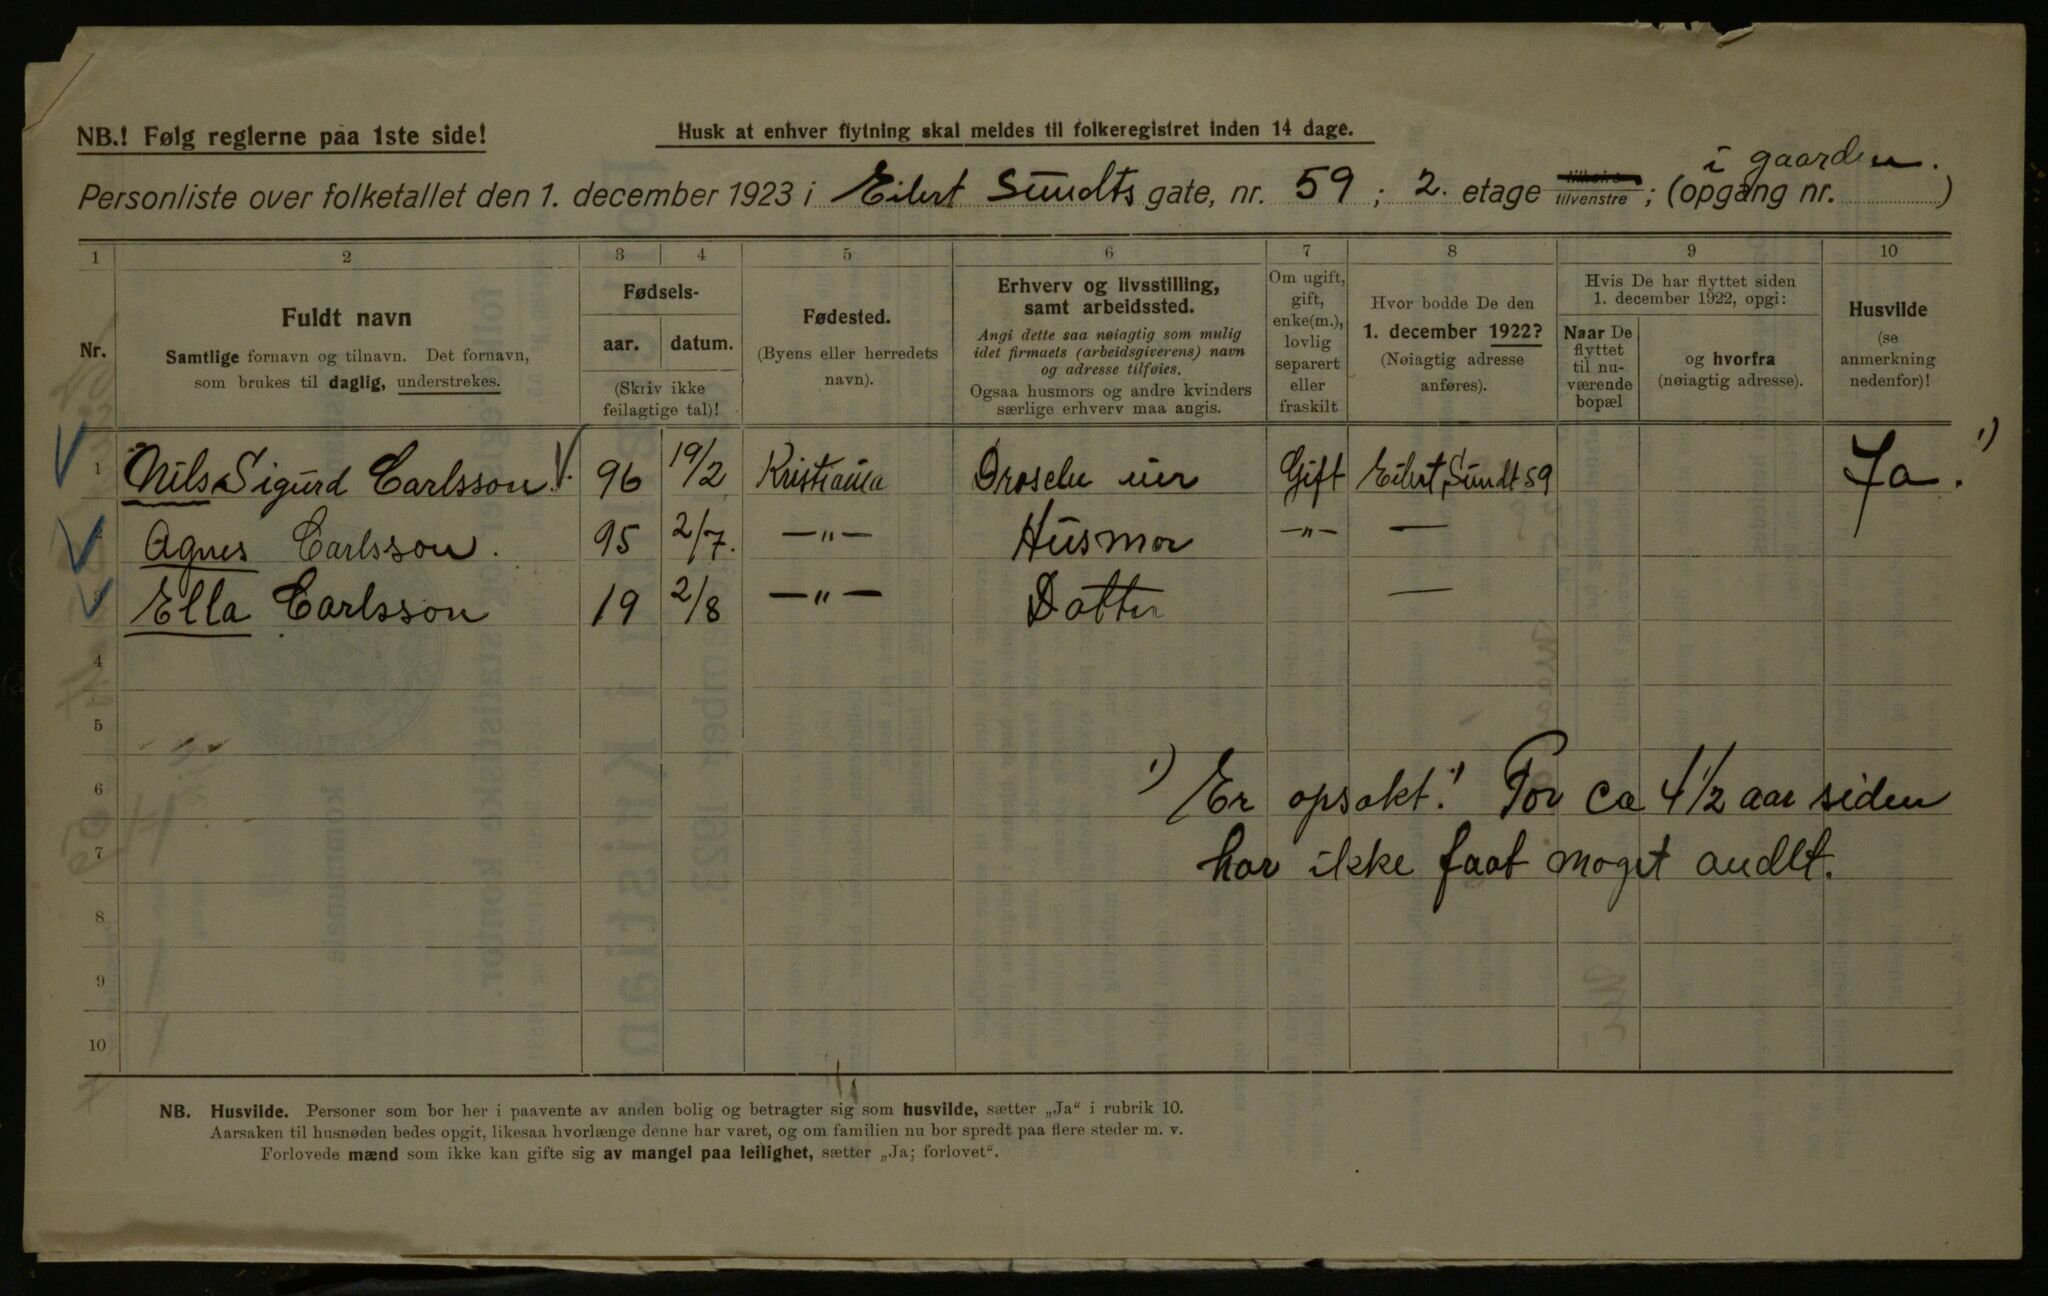 NB.! Følg reglerne paa 1ste side!
Husk at enhver flytning skal meldes til folkeregistret inden 14 dage.
i gaarden.
Personliste over folketallet den 1. december 1923 i Eilert Sundts gate, nr. 59 ; 2. etage tilvenstre ; (opgang nr. )
1 2 3 4 5 6 7 8 9 10
Nr.
Fuldt navn
Samtlige fornavn og tilnavn. Det fornavn,
som brukes til daglig, understrekes.
Fødsels-
aar. datum.
(Skriv ikke
feilagtige tal)!
Fødested.
(Byens eller herredets
navn).
Erhverv og livsstilling,
samt arbeidssted.
Angi dette saa nøiagtig som mulig
idet firmaets (arbeidsgiverens) navn
og adresse tilføies.
Ogsaa husmors og andre kvinders
særlige erhverv maa angis.
Om ugift,
gift,
enke(m.),
lovlig
separert
eller
fraskilt
Hvor bodde De den
1. december 1922?
(Nøiagtig adresse
anføres).
Hvis De har flyttet siden
1. december 1922, opgi:
Naar De
flyttet
til nu-
værende
bopæl
og hvorfra
(nøiagtig adresse).
Husvilde
(se
anmerkning
nedenfor)!
1 Nils Sigurd Carlsson 96 19/2 Kristiania Drosche eier Gift Eilert Sundt 59 Ja. 1)
2 Agnes Carlsson. 95 2/7. —„— Husmor —„— —
3 Ella Carlsson 19 2/8 —„— Datter —
4
5
6 1) Er opsakt. For ca 4 1/2 aar siden
7 har ikke faat noget andet.
8
9
10
NB. Husvilde. Personer som bor her i paavente av anden bolig og betragter sig som husvilde, sætter „Ja“ i rubrik 10.
Aarsaken til husnøden bedes opgit, likesaa hvorlænge denne har varet, og om familien nu bor spredt paa flere steder m. v.
Forlovede mænd som ikke kan gifte sig av mangel paa leilighet, sætter „Ja; forlovet“.